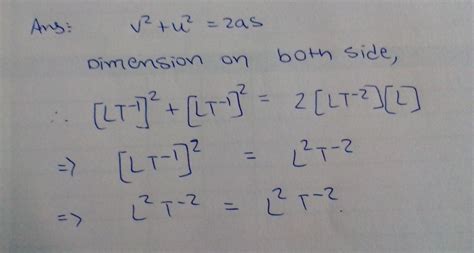 Ans: v² + u² = 2as
Dimension on both side,
∴ [LT⁻¹]² + [LT⁻¹]² = 2[LT⁻²][L]
⇒ [LT⁻¹]² = L²T⁻²
⇒ L²T⁻² = L²T⁻².